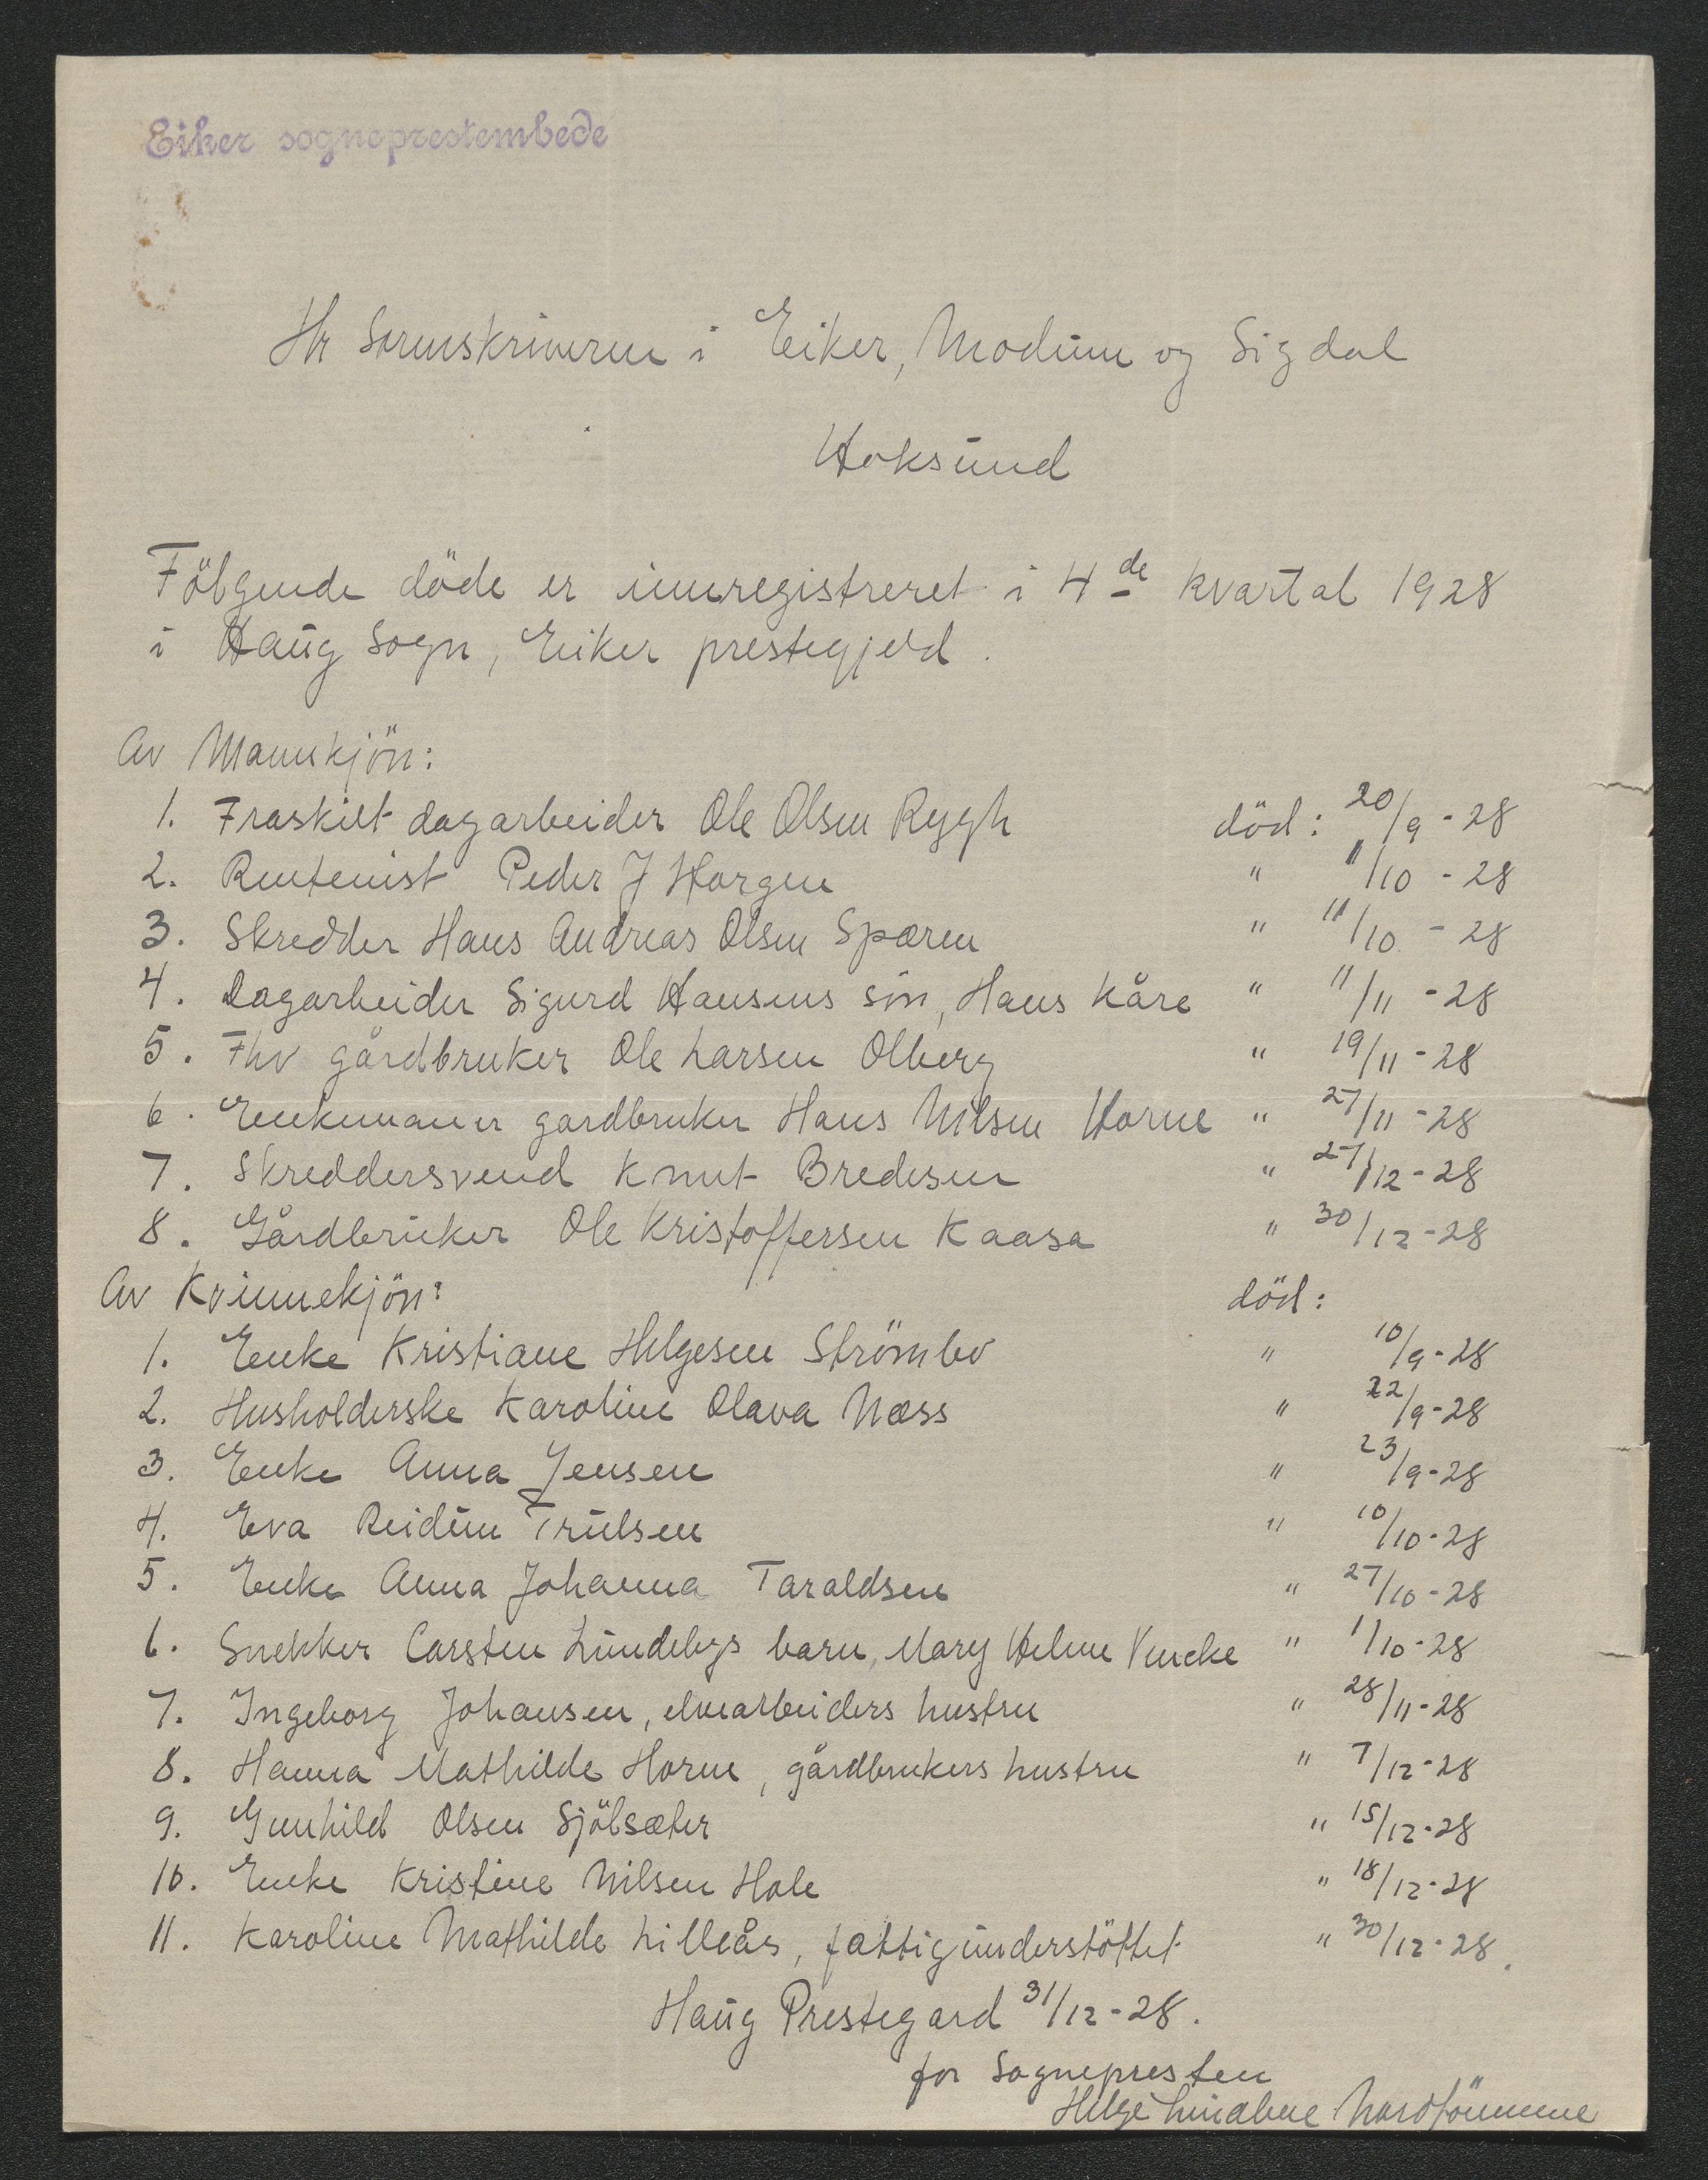 Eiker sogneprestembede
Hr Sorenskriveren i Eiker, Modum og Sigdal
Hoksund
Fölgende döde er innregistreret i 4de kvartal 1928
i Haug Sogn, Eiker prestegjeld.
Av Mannkjön:
1. Fraskilt dagarbeider Ole Olsen Rygh död: 20/9-28
2. Rentenist Peder J Horgen " 11/10-28
3. Skredder Hans Andreas Olsen Spæren " 11/10-28
4. Dagarbeider Sigurd Hansens sön, Hans Kåre " 11/11-28
5. Fhv gårdbruker Ole Larsen Olberg " 19/11-28
6. Enkemann gardbruker Hans Nilsen Horne " 27/11-28
7. Skreddersvend Knut Bredesen " 27/12-28
8. Gårdbruker Ole Kristoffersen Kaasa " 30/12-28
Av Kvinnekjön: död:
1. Enke Kristiane Helgesen Strömbo " 10/9-28
2. Husholderske Karoline Olava Næss " 22/9-28
3. Enke Anna Jensen " 23/9-28
4. Eva Reidun Trulsen " 10/10-28
5. Enke Anna Johanna Taraldsen " 27/10-28
6. Snekker Carsten Lundebys barn, Mary Helene Vencke " 1/10-28
7. Ingeborg Johansen, elvearbeiders hustru " 28/11-28
8. Hanna Mathilde Horne, gårdbrukers hustru " 7/12-28
9. Gunhild Olsen Sjölsæter " 15/12-28
10. Enke Kristine Nilsen Hole " 18/12-28
11. Karoline Mathilde Lilleås, fattigunderstöttet " 30/12-28.
Haug Prestegard 31/12-28.
for Sognepresten
Helge